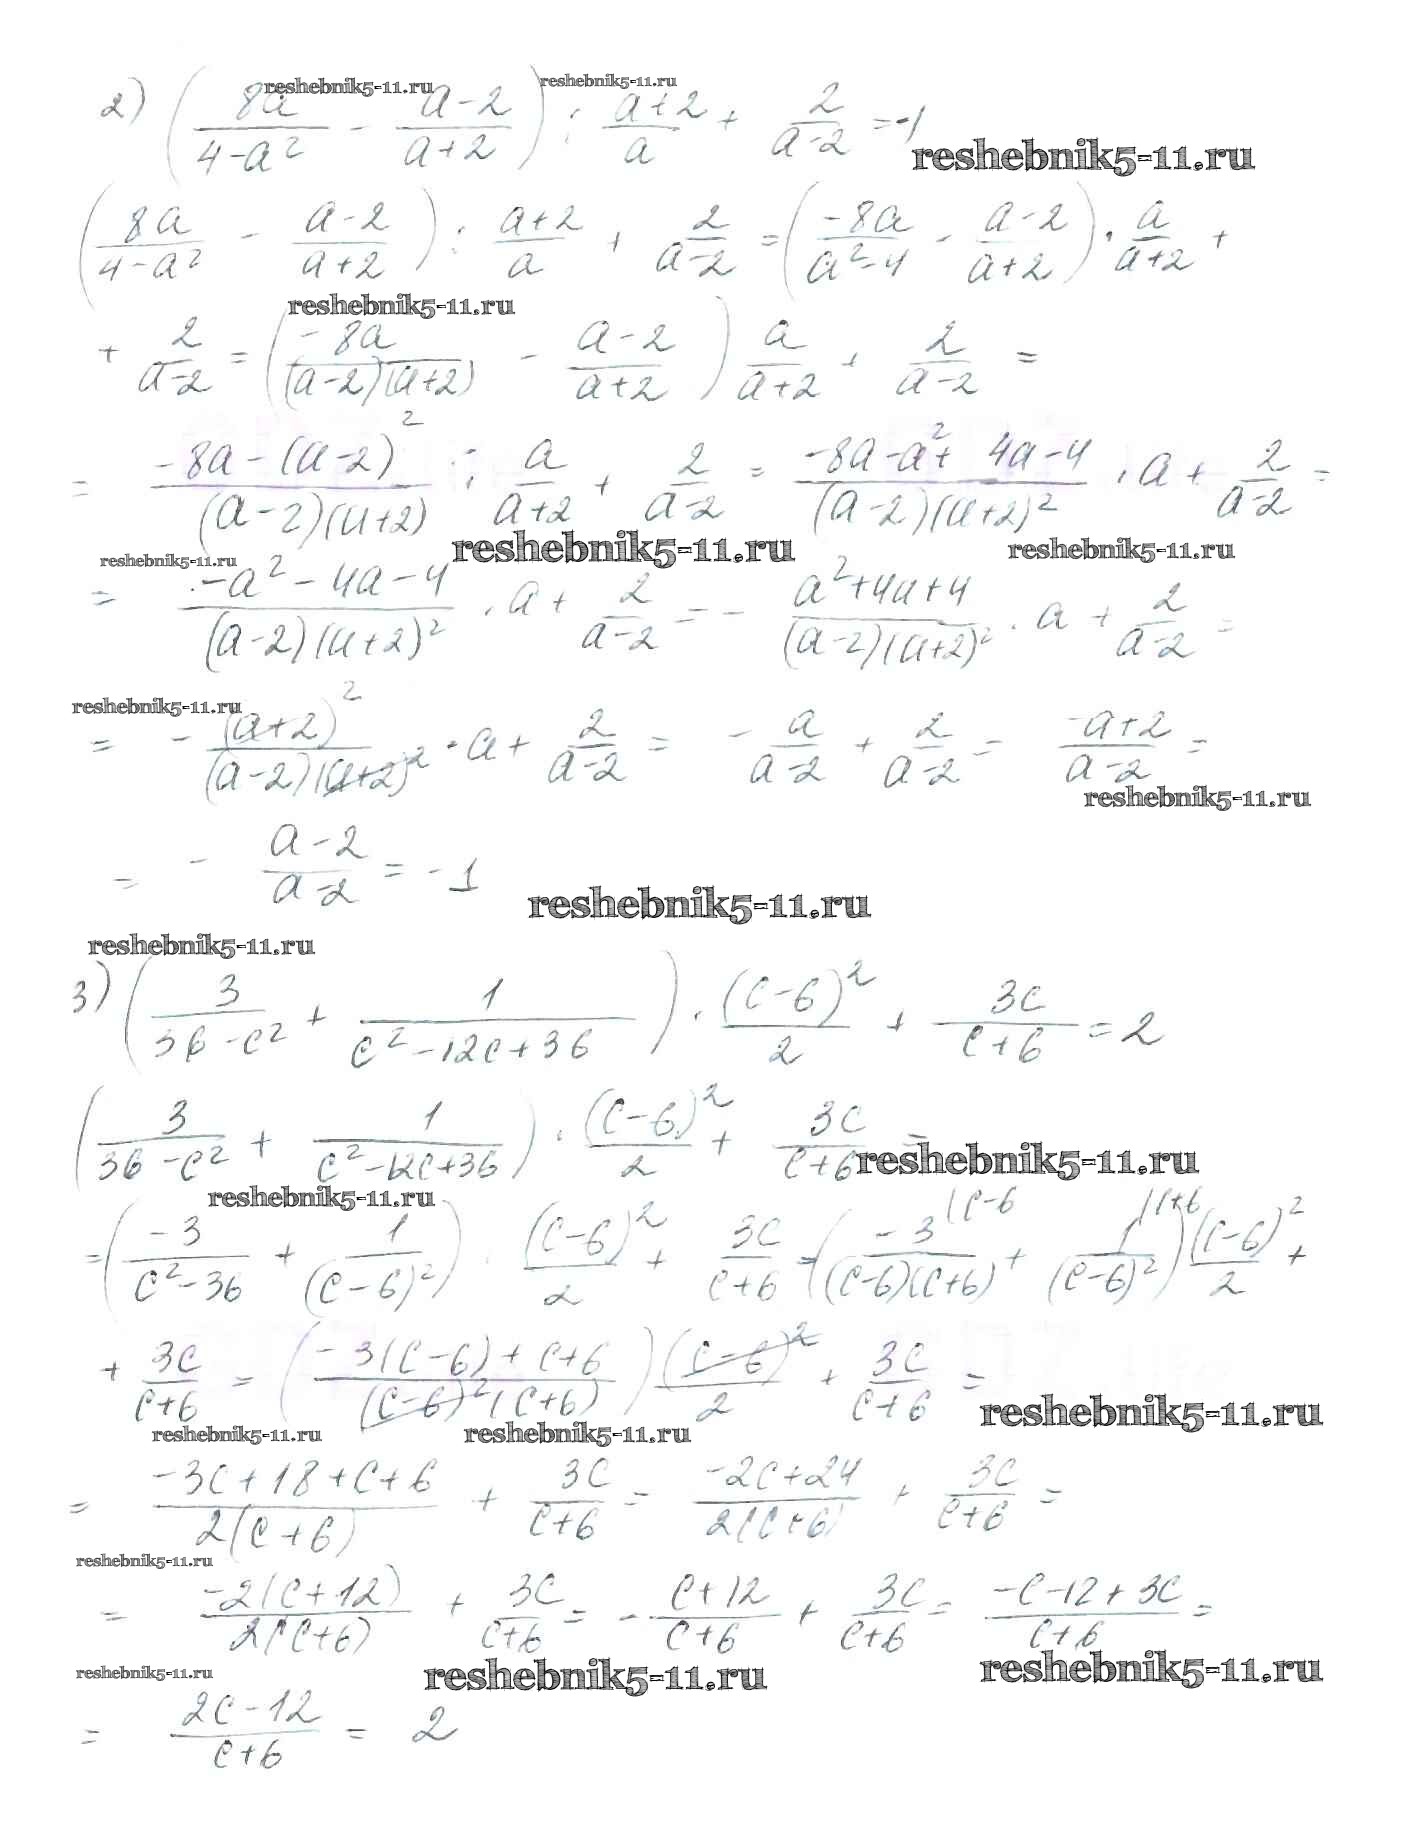 reshebnik5-11.ru reshebnik5-11.ru
2) (8a/(4-a²) - (a-2)/(a+2)) : (a+2)/a + 2/(a-2) = -1
reshebnik5-11.ru
(8a/(4-a²) - (a-2)/(a+2)) : (a+2)/a + 2/(a-2) = (-8a/(a²-4) - (a-2)/(a+2)) · a/(a+2) +
reshebnik5-11.ru
+ 2/(a-2) = (-8a/((a-2)(a+2)) - (a-2)/(a+2)) a/(a+2) + 2/(a-2) =
= (-8a-(a-2)²)/((a-2)(a+2)) : a/(a+2) + 2/(a-2) = (-8a-a²+4a-4)/((a-2)(a+2)²) · a + 2/(a-2) =
reshebnik5-11.ru reshebnik5-11.ru reshebnik5-11.ru
= (-a²-4a-4)/((a-2)(a+2)²) · a + 2/(a-2) = - (a²+4a+4)/((a-2)(a+2)²) · a + 2/(a-2) =
reshebnik5-11.ru
= - (a+2)²/((a-2)(a+2)²) · a + 2/(a-2) = - a/(a-2) + 2/(a-2) = (-a+2)/(a-2) =
reshebnik5-11.ru
= - (a-2)/(a-2) = -1
reshebnik5-11.ru
reshebnik5-11.ru
3) (3/(36-c²) + 1/(c²-12c+36)) · (c-6)²/2 + 3c/(c+6) = 2
(3/(36-c²) + 1/(c²-12c+36)) · (c-6)²/2 + 3c/(c+6) =
reshebnik5-11.ru
reshebnik5-11.ru
= (-3/(c²-36) + 1/(c-6)²) · (c-6)²/2 + 3c/(c+6) = (-3 |c-6 /((c-6)(c+6)) + 1 |c+6 /(c-6)²) (c-6)²/2 +
+ 3c/(c+6) = ((-3(c-6)+c+6)/((c-6)²(c+6))) (c-6)²/2 + 3c/(c+6) =
reshebnik5-11.ru
reshebnik5-11.ru reshebnik5-11.ru
= (-3c+18+c+6)/(2(c+6)) + 3c/(c+6) = (-2c+24)/(2(c+6)) + 3c/(c+6) =
reshebnik5-11.ru
= -2(c+12)/(2(c+6)) + 3c/(c+6) = - (c+12)/(c+6) + 3c/(c+6) = (-c-12+3c)/(c+6) =
reshebnik5-11.ru reshebnik5-11.ru reshebnik5-11.ru
= (2c-12)/(c+6) = 2